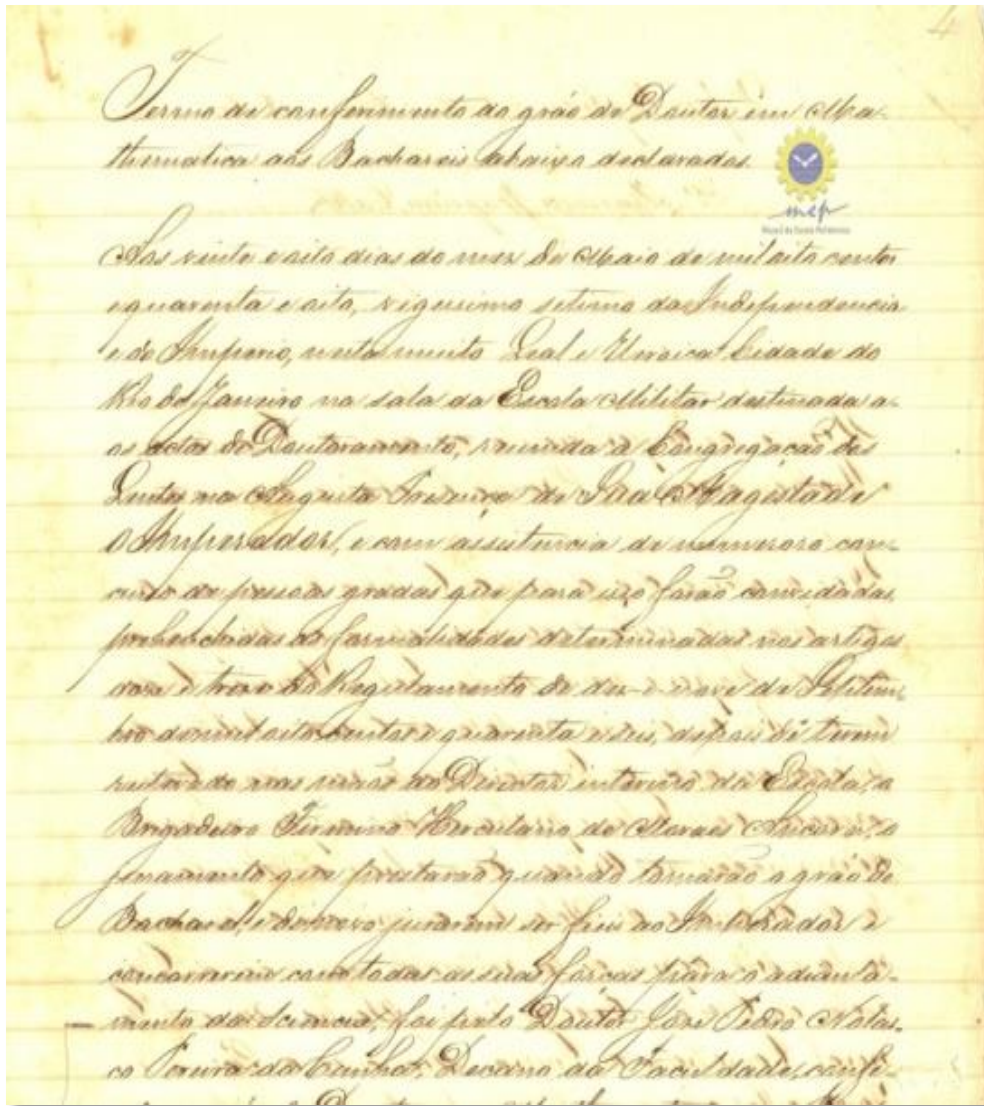 4
Termo de conferimento do gráo de Doutor em Ma-
thematica aos Bachareis abaixo declarados.
mep
Museu da Escola Politécnica
Aos vinte e oito dias do mez de Maio de mil oito centos
e quarenta e oito, vigesimo setimo da Independencia
e do Imperio, nesta muito Leal e Heroica Cidade do
Rio de Janeiro na sala da Escola Militar destinada a-
os actos de Doutoramento, reunida a Congregação dos
Lentes na Augusta Presença de Sua Magestade
O Imperador, e com assistencia de numeroso con-
curso de pessoas gradas que para isso forão convidadas,
prehenchidas as formalidades determinadas nos artigos
doze e treze do Regulamento de dez e nove de Setem-
bro de mil oito centos e quarenta e seis, depois de terem
nas mãos do Director interino da Escola, o
Brigadeiro Firmino Herculano de Moraes Ancora, o
juramento que prestarão quando tomarão o gráo de
Bacharel, e de novo jurarem ser fieis ao Imperador e
concorrerem com todas as suas forças para o adianta-
mento da Sciencia, foi pelo Doutor José Pedro Nolas-
co Pereira da Cunha, Decano da Faculdade, confe-